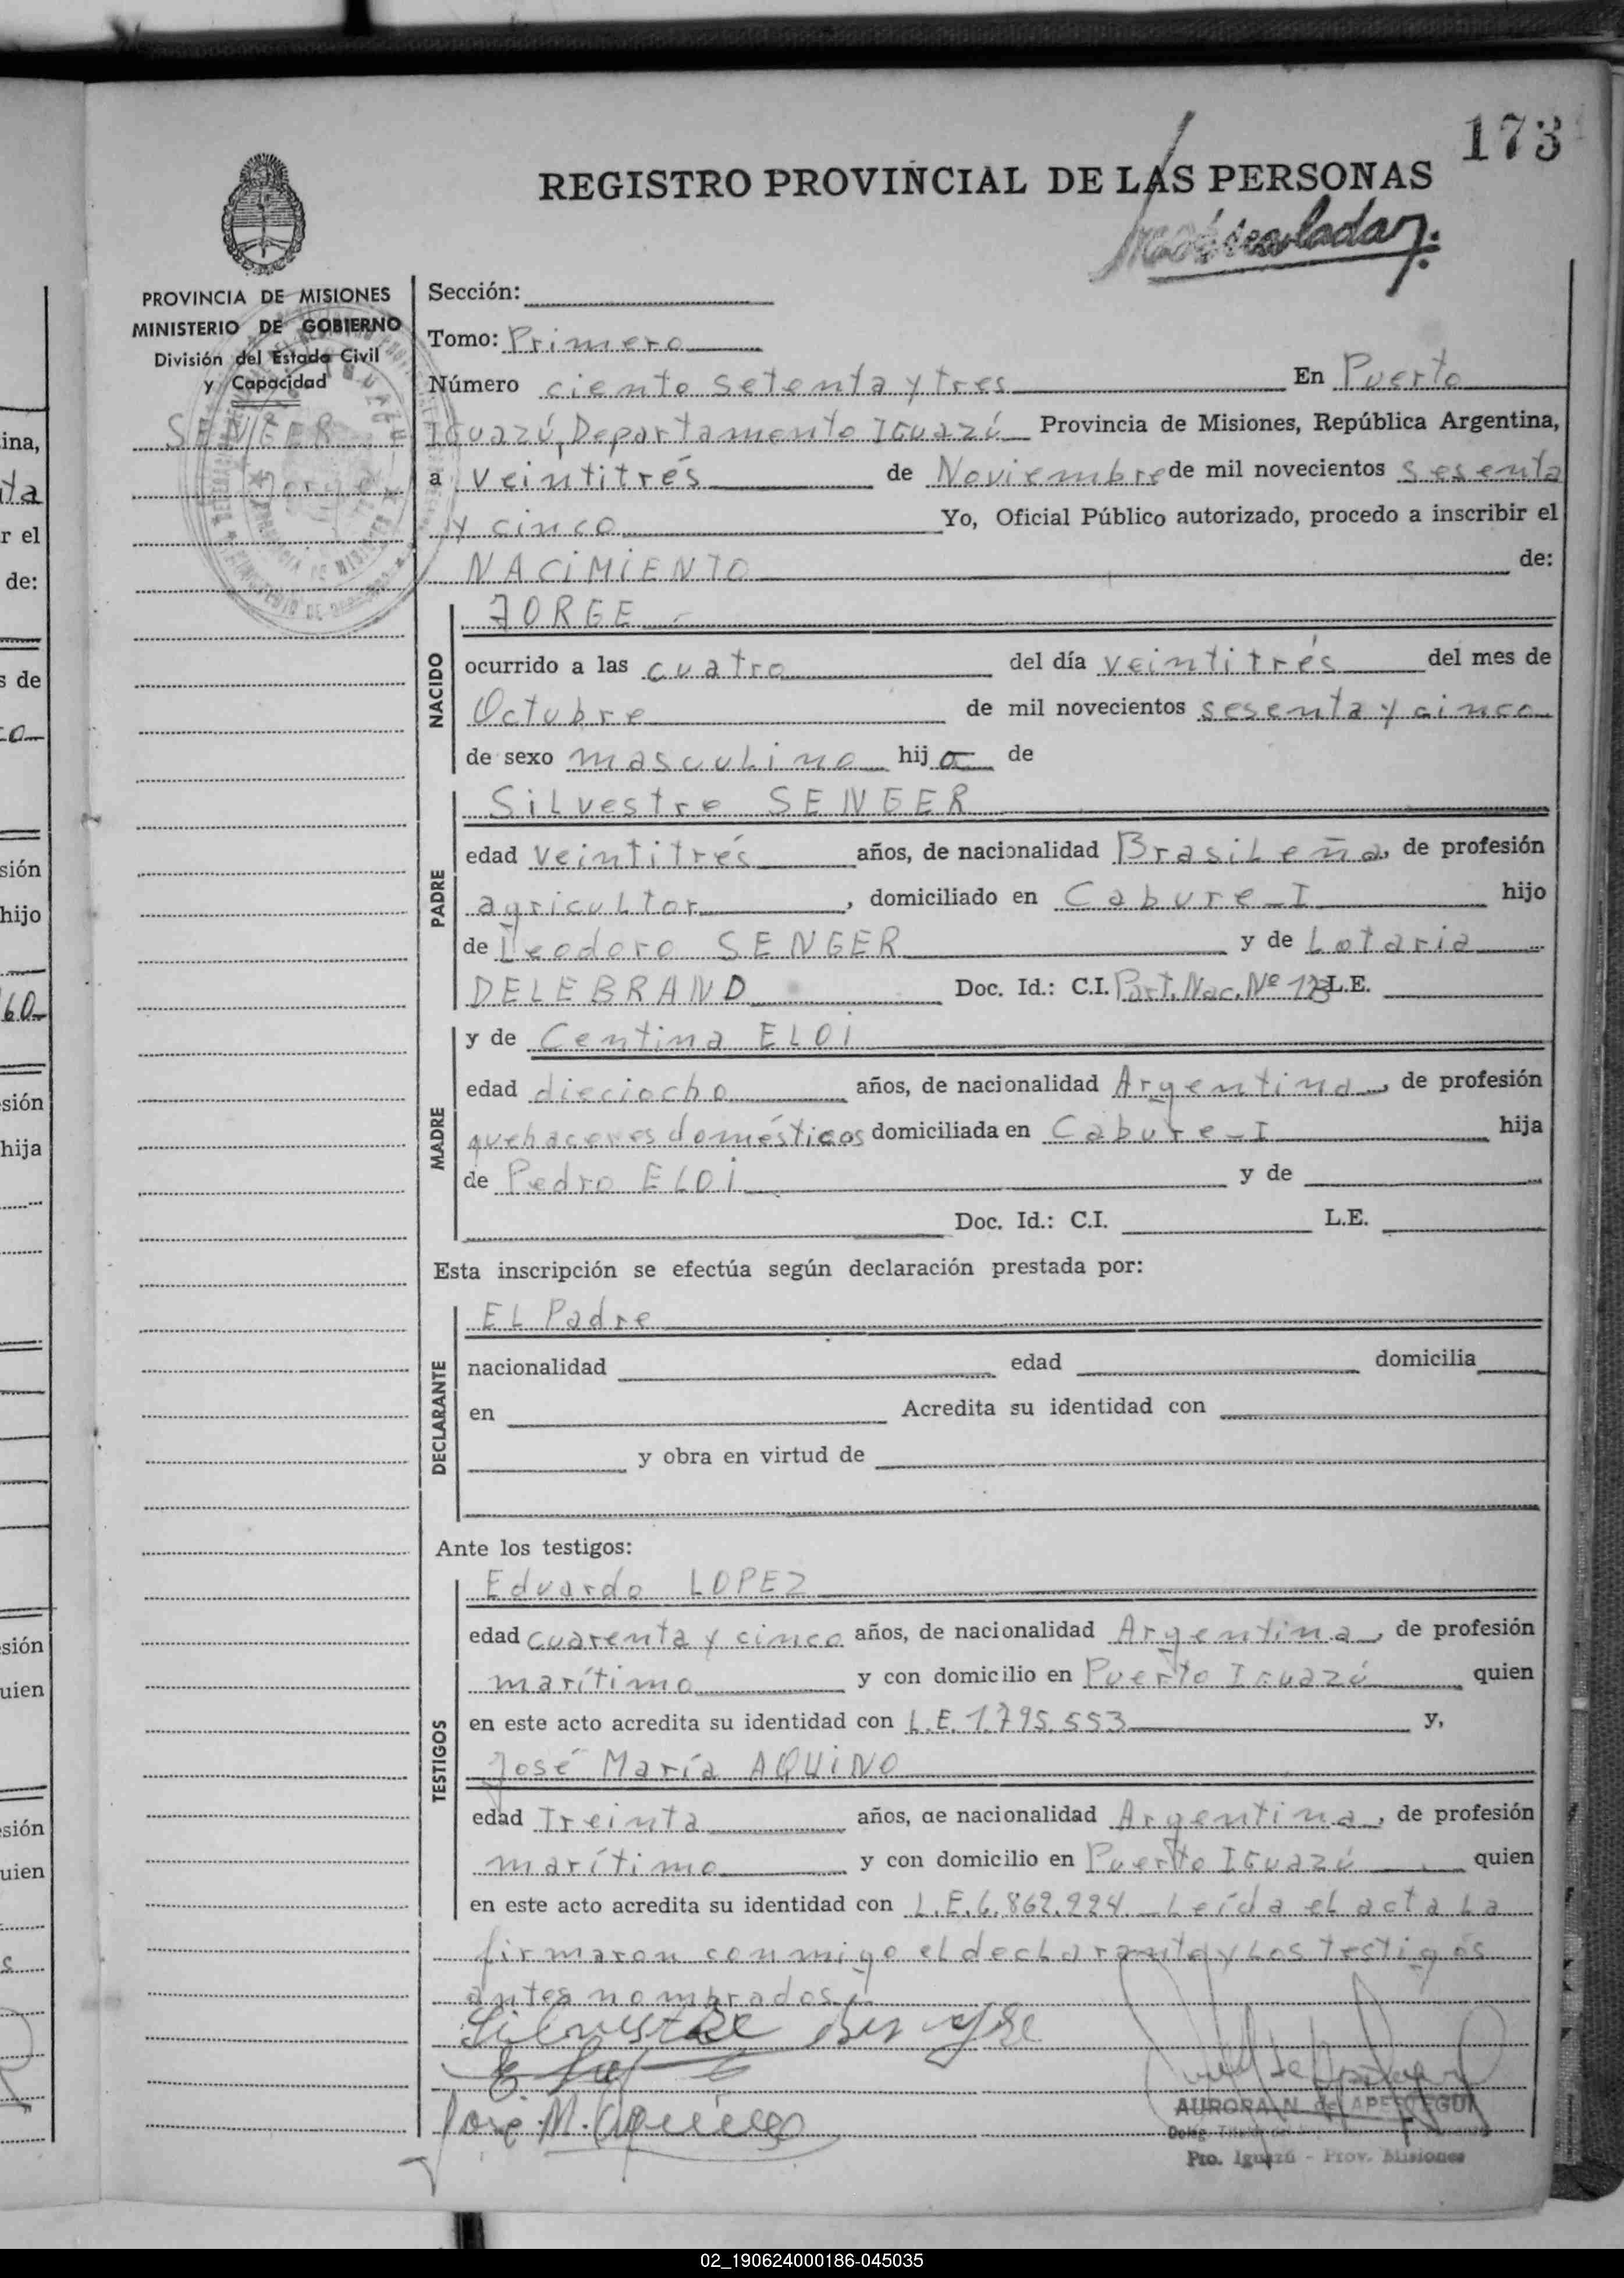 173
REGISTRO PROVINCIAL DE LAS PERSONAS
PROVINCIA DE MISIONES
MINISTERIO DE GOBIERNO
División del Estado Civil
y Capacidad
SENGER
Jorge
Sección:
Tomo: Primero
Número ciento setenta y tres En Puerto
Iguazú, Departamento Iguazú Provincia de Misiones, República Argentina,
a veintitrés de Noviembre de mil novecientos sesenta
y cinco Yo, Oficial Público autorizado, procedo a inscribir el
NACIMIENTO de:
NACIDO
JORGE
ocurrido a las cuatro del día veintitrés del mes de
Octubre de mil novecientos sesenta y cinco
de sexo masculino hijo de
PADRE
Silvestre SENGER
edad veintitrés años, de nacionalidad Brasileña, de profesión
agricultor, domiciliado en Cabure-I hijo
de Leodoro SENGER y de Lotaria
DELEBRAND Doc. Id.: C.I. Part. Nac. Nº 123 L.E.
MADRE
y de Centina ELOI
edad dieciocho años, de nacionalidad Argentina, de profesión
quehaceres domésticos domiciliada en Cabure-I hija
de Pedro ELOI y de
Doc. Id.: C.I. L.E.
Esta inscripción se efectúa según declaración prestada por:
DECLARANTE
EL Padre
nacionalidad edad domicilia
en Acredita su identidad con
y obra en virtud de
Ante los testigos:
TESTIGOS
Eduardo LOPEZ
edad cuarenta y cinco años, de nacionalidad Argentina, de profesión
marítimo y con domicilio en Puerto Iguazú quien
en este acto acredita su identidad con L.E. 1.795.553 y,
José María AQUINO
edad Treinta años, de nacionalidad Argentina, de profesión
marítimo y con domicilio en Puerto Iguazú quien
en este acto acredita su identidad con L.E. 6.862.224. Leída el acta la
firmaron conmigo el declarante y los testigos
antes nombrados.
José M. Aquino
AURORA N. de APESTEGUI
Pto. Iguazú - Prov. Misiones
ina,
ta
r el
de:
s de
co
sión
hijo
60
sión
hija
sión
uien
sión
uien
s
02_190624000186-045035